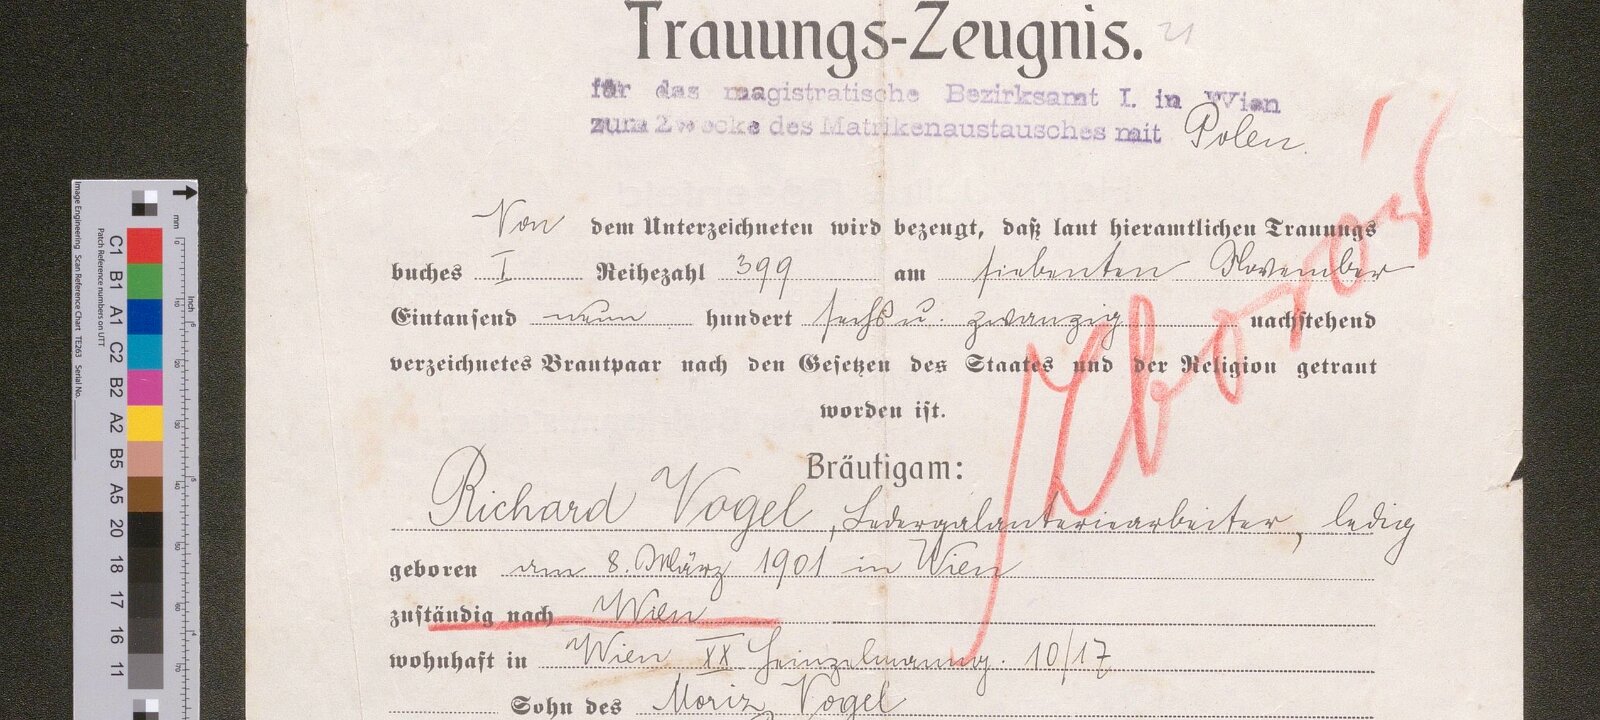 Trauungs-Zeugnis. 21
für das magistratische Bezirksamt I. in Wien
zum Zwecke des Matrikenaustausches mit Polen.
Von dem Unterzeichneten wird bezeugt, daß laut hieramtlichen Trauungs
buches I Reihezahl 399 am siebenten November
Eintausend neun hundert sechs u. zwanzig nachstehend
verzeichnetes Brautpaar nach den Gesetzen des Staates und der Religion getraut
worden ist.
Bräutigam:
Richard Vogel, Ledergalanteriearbeiter, ledig
geboren am 8. März 1901 in Wien
zuständig nach Wien
wohnhaft in Wien XX Heinzelmanng. 10/17
Sohn des Moriz Vogel
Image Engineering Scan Reference Chart TE263 Serial No.
Patch Reference numbers on UTT
C1 B1 A1 C2 B2 A2 B5 A5 20 18 17 16 11
mm
inch